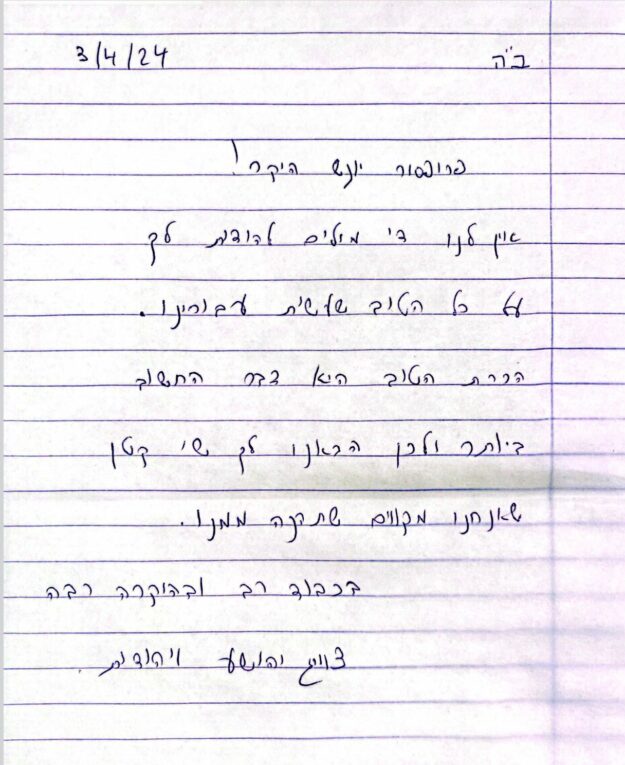 ב"ה
3/4/24
פרופסור יונש היקר!
אין לנו די מילים להודות לך
על כל הטוב שעשית עבורינו.
הכרת הטוב היא דבר החשוב
ביותר ולכן הבאנו לך שי קטן
שאנחנו מקווים שתהנה ממנו.
בכבוד רב ובהוקרה רבה
יהושע ויהודית.